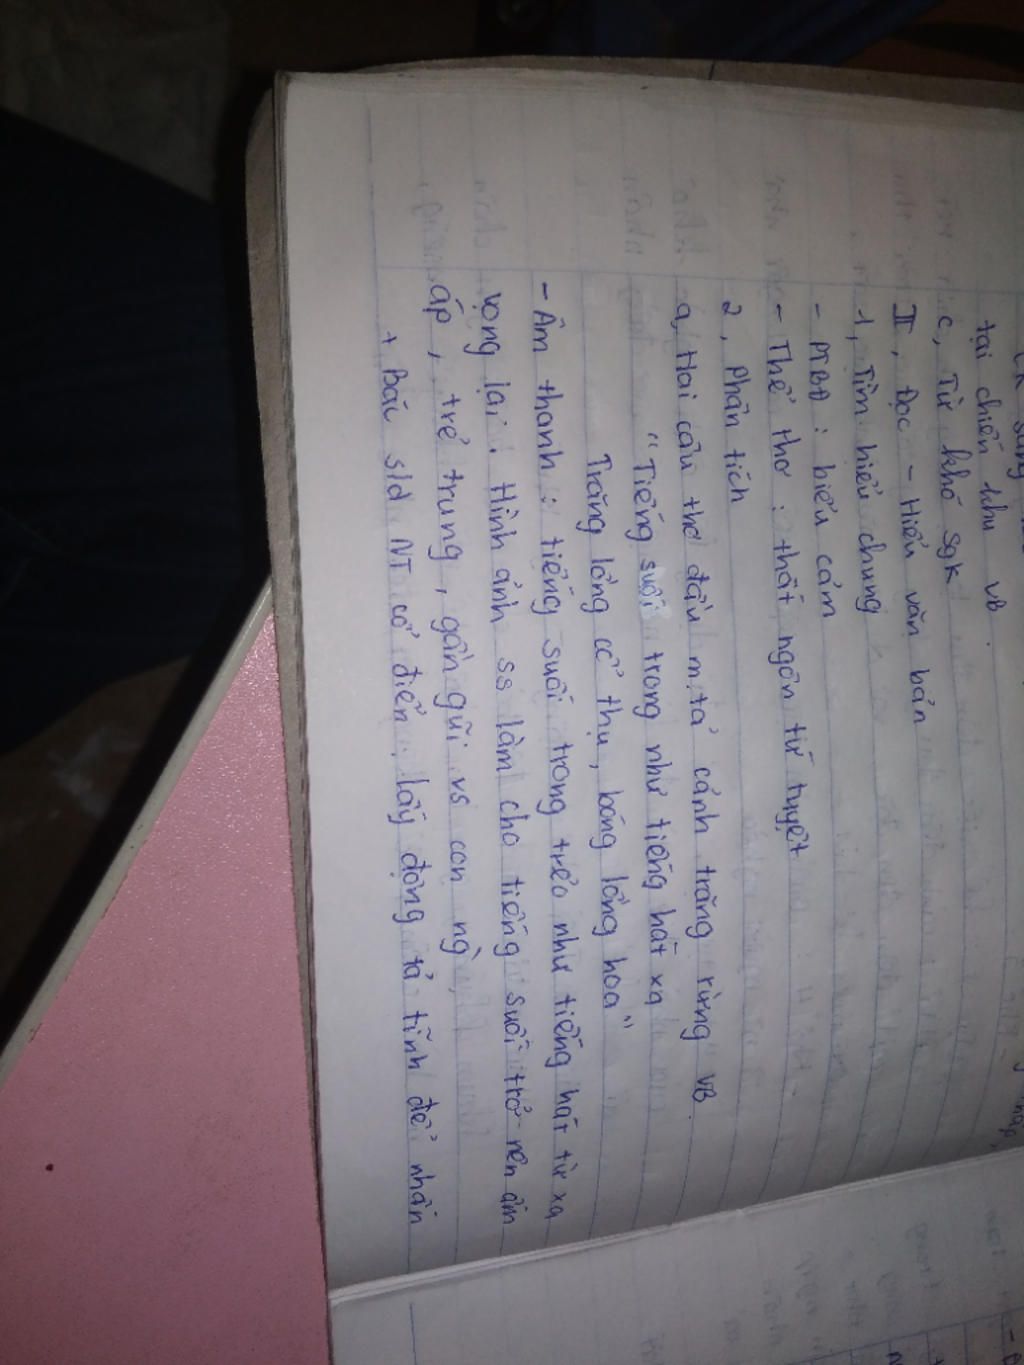 tại chiến khu VB.
c, Từ khó sgk
II, Đọc - Hiểu văn bản
1, Tìm hiểu chung
- PTBĐ : biểu cảm
- Thể thơ : thất ngôn tứ tuyệt
2, Phân tích
a, Hai câu thơ đầu m.tả cảnh trăng rừng VB.
"Tiếng suối trong như tiếng hát xa
Trăng lồng cổ thụ, bóng lồng hoa"
- Âm thanh : tiếng suối trong trẻo như tiếng hát từ xa
vọng lại. Hình ảnh ss làm cho tiếng suối trở nên ấm
áp, trẻ trung, gần gũi vs con ng`
+ Bác s/d NT cổ điển, lấy động tả tĩnh để nhấn